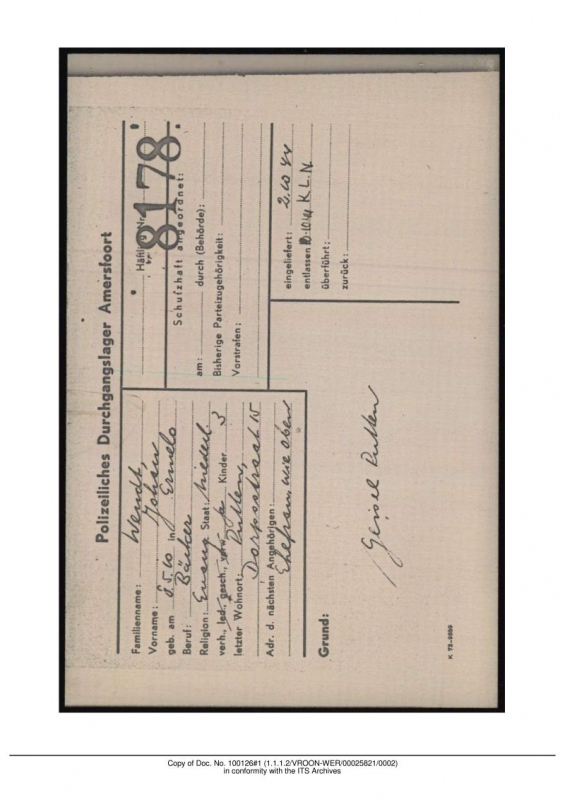 Polizeiliches Durchgangslager Amersfoort
Familienname: Wendt,
Vorname: Johan
geb. am 8.5.10 in Ermelo
Beruf: Bäcker
Religion: Evang. Staat: Niederl.
verh., led., gesch., verw. Kinder 3
letzter Wohnort: Putten,
Dorpsstraat 15
Adr. d. nächsten Angehörigen:
Ehefrau, wie oben
Häftling Nr.
8178
Schutzhaft angeordnet:
am: durch (Behörde):
Bisherige Parteizugehörigkeit:
Vorstrafen:
eingeliefert: 2.10 44
entlassen K.L.N.
überführt:
zurück:
Grund:
Geisel Putten
Copy of Doc. No. 100126#1 (1.1.1.2/VROON-WER/00025821/0002)
in conformity with the ITS Archives